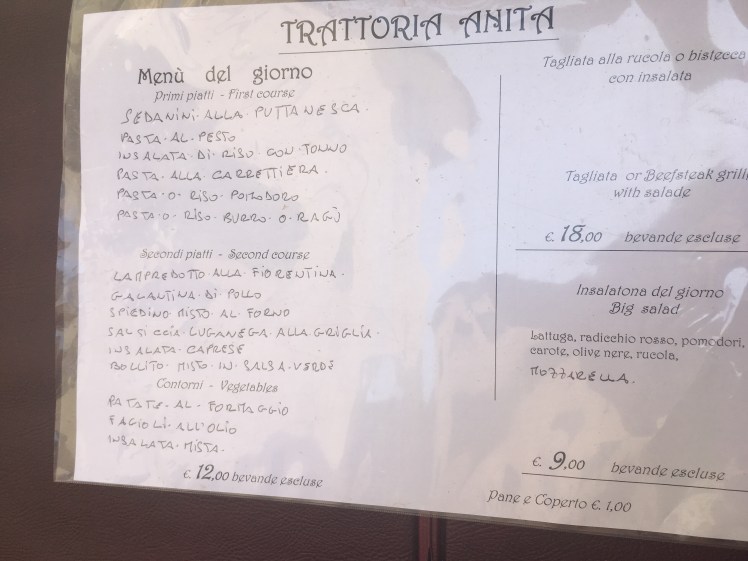 TRATTORIA ANITA
Menù del giorno
Primi piatti - First course
SEDANINI ALLA PUTTANESCA.
PASTA AL PESTO
INSALATA DI RISO CON TONNO
PASTA ALLA CARRETTIERA.
PASTA O RISO POMODORO
PASTA O RISO BURRO O RAGÙ
Secondi piatti - Second course
LAMPREDOTTO ALLA FIORENTINA.
GALANTINA DI POLLO
SPIEDINO MISTO AL FORNO
SALSICCIA LUGANEGA ALLA GRIGLIA.
INSALATA CAPRESE
BOLLITO MISTO IN SALSA VERDE
Contorni - Vegetables
PATATE AL FORMAGGIO
FAGIOLI ALL'OLIO
INSALATA MISTA.
€. 12,00 bevande escluse
Tagliata alla rucola o bistecca
con insalata
Tagliata or Beefsteak grill
with salade
€. 18,00 bevande escluse
Insalatona del giorno
Big salad
Lattuga, radicchio rosso, pomodori,
carote, olive nere, rucola,
MOZZARELLA.
€. 9,00 bevande escluse
Pane e Coperto €. 1,00